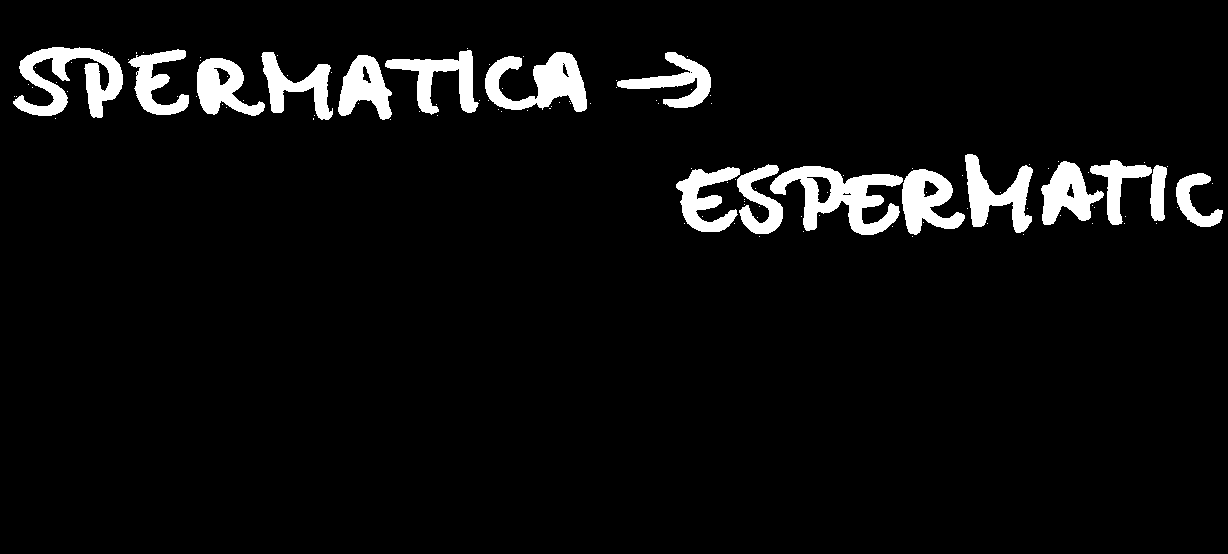 SPERMATICA →
ESPERMATIC